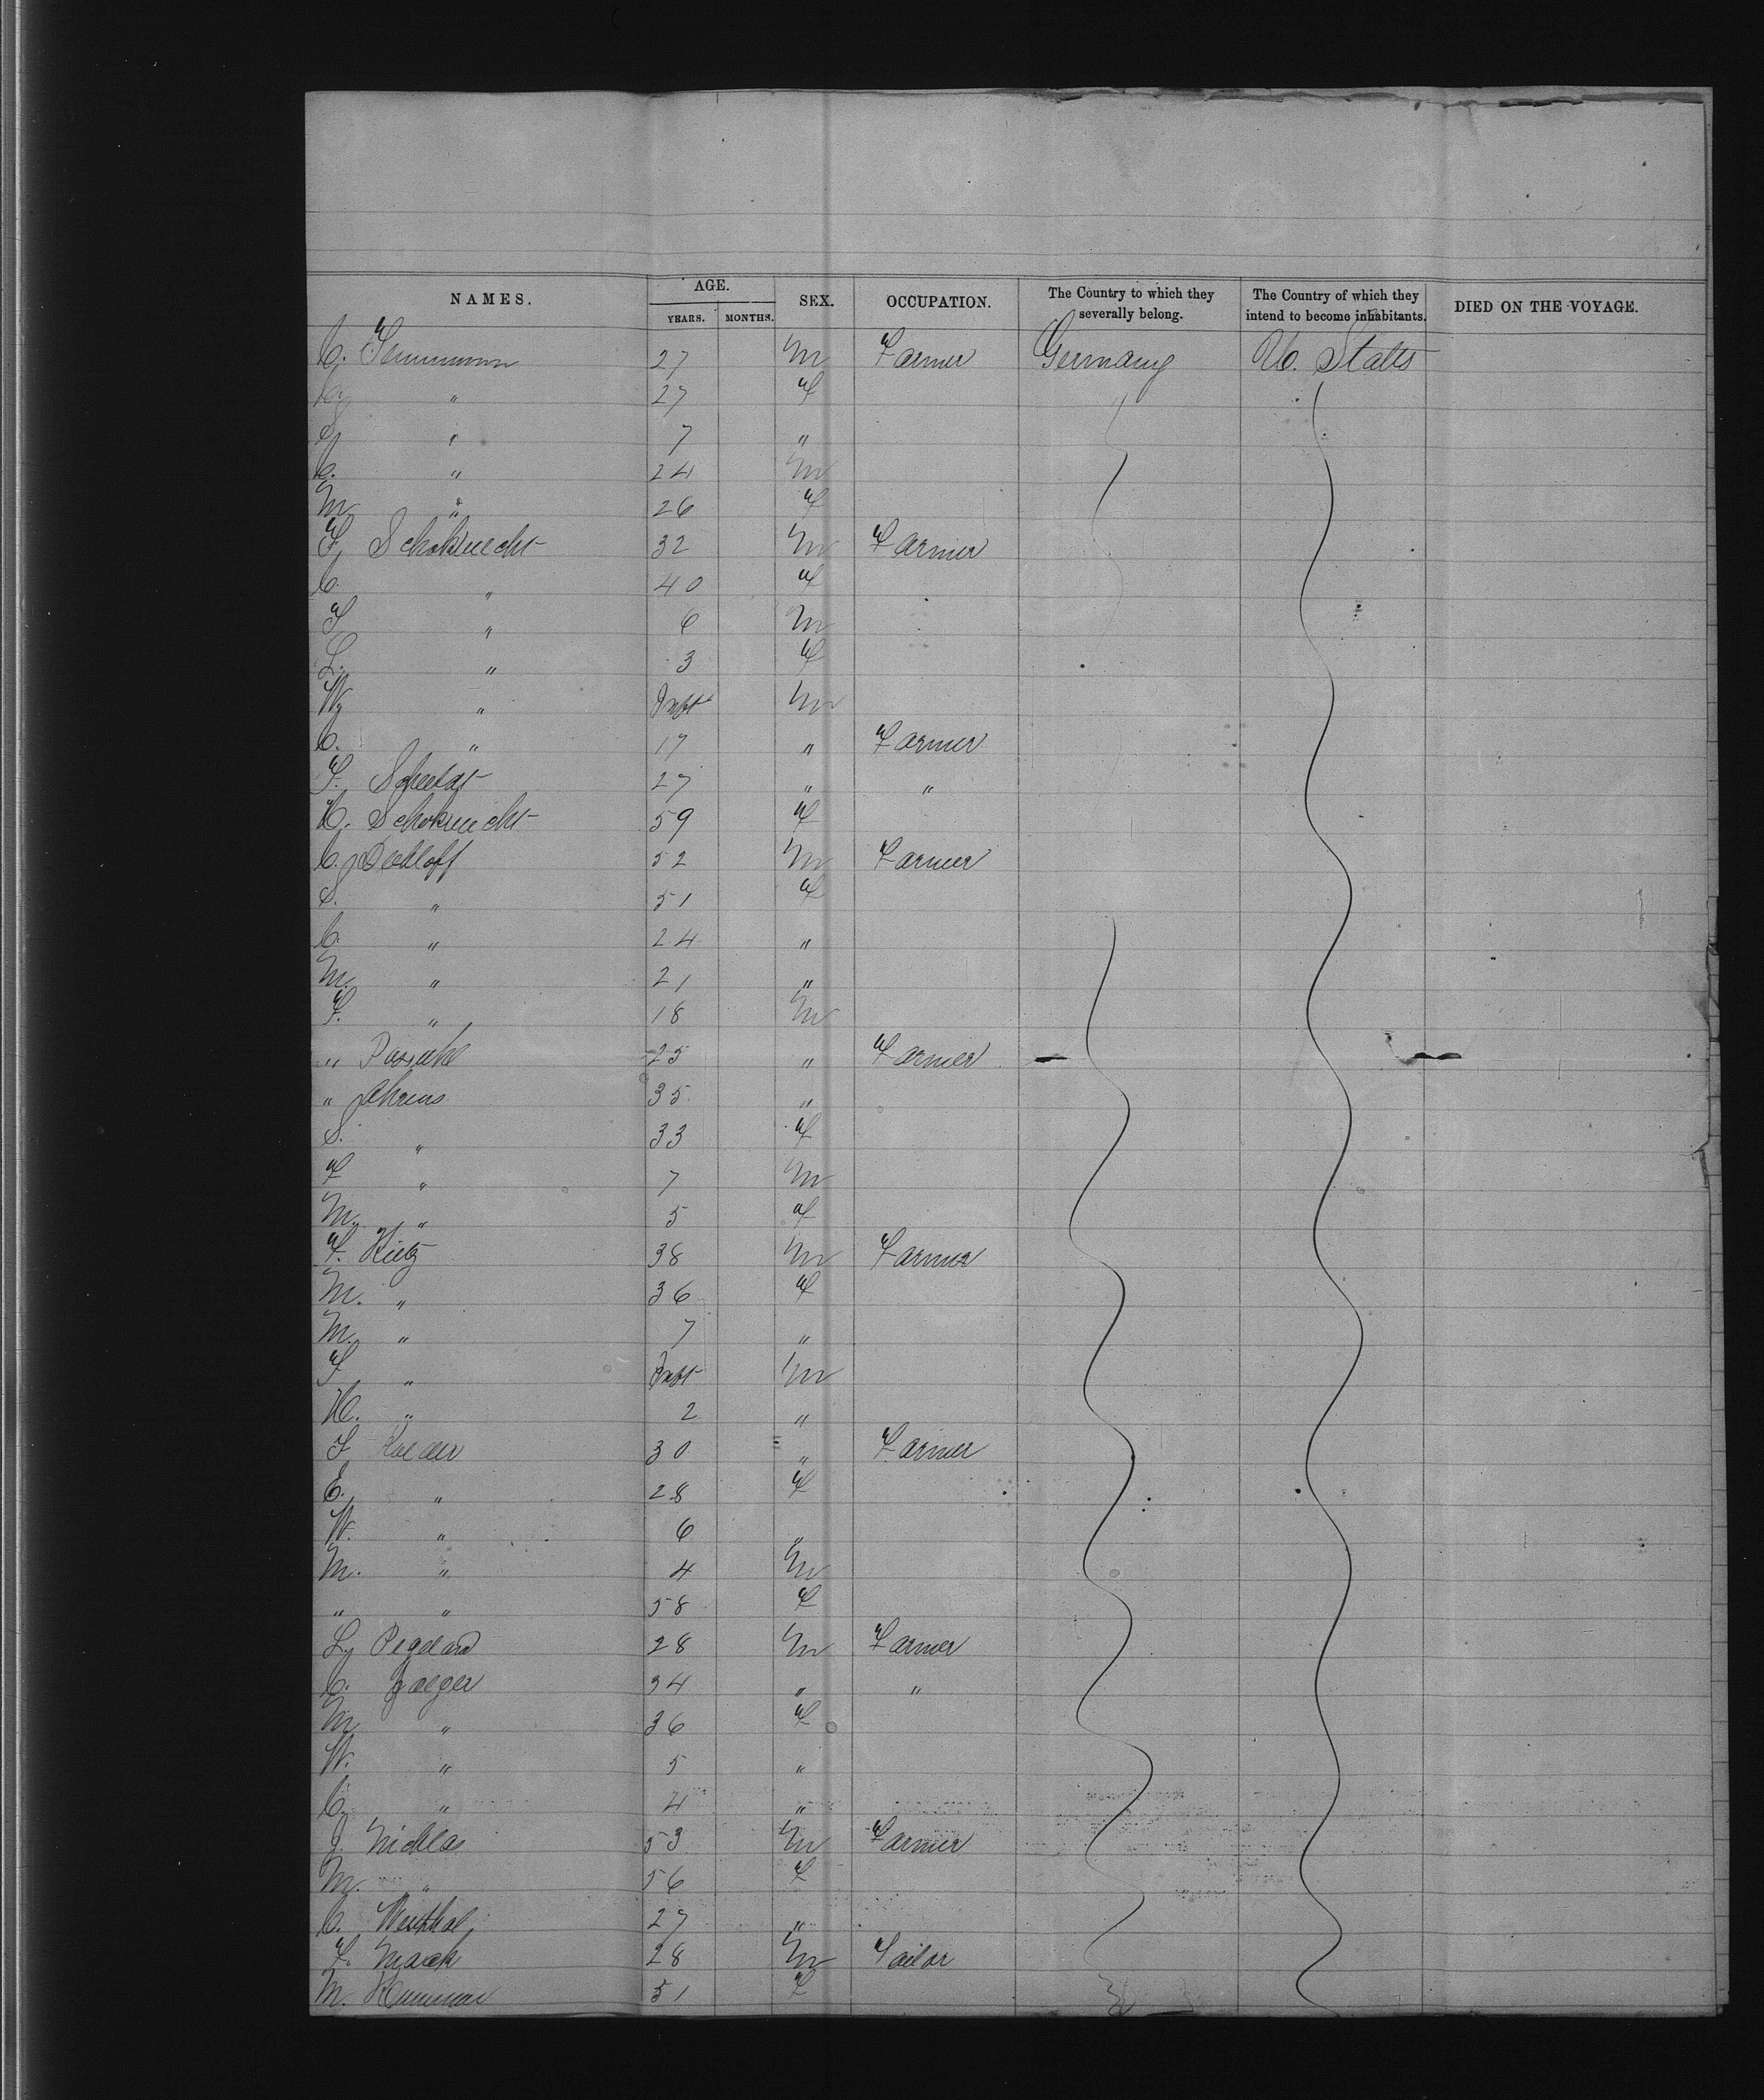 NAMES. AGE. YEARS. MONTHS. SEX. OCCUPATION. The Country to which they severally belong. The Country of which they intend to become inhabitants. DIED ON THE VOYAGE.
C. 27 M Farmer Germany U. States
" 27 F
S " 7 "
C. " 24 M
M " 26 F
F Schoknecht 32 M Farmer
C. " 40 F
F " 6 M
L. " 3 F
W " Inft M
C. " 17 " Farmer
F. 27 " "
H. Schoknecht 59 F
C. Dehloff 52 M Farmer
S. " 51 F
C. " 24 "
M. " 21 "
F. " 18 M
" 25 " Farmer
" Ahrens 35 "
S. " 33 F
F " 7 M
M. " 5 F
F. Kietz 38 M Farmer
M. " 36 F
M. " 7 "
F " Inft M
H. " 2 "
F 30 " Farmer
E. " 28 F
W. " 6 "
M. " 4 M
" " 58 F
L. 28 M Farmer
C. Jaeger 34 " "
M " 36 F
W. " 5 "
C. " 4 "
J. Nicklas 53 M Farmer
M. " 56 F
C. Westphal 27 "
F. Maack 28 M Tailor
M. 51 F